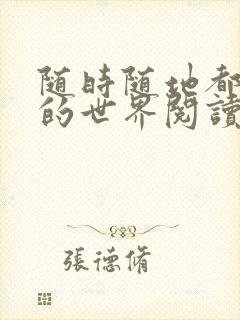 随時随地都
的世界閱讀
張德脩